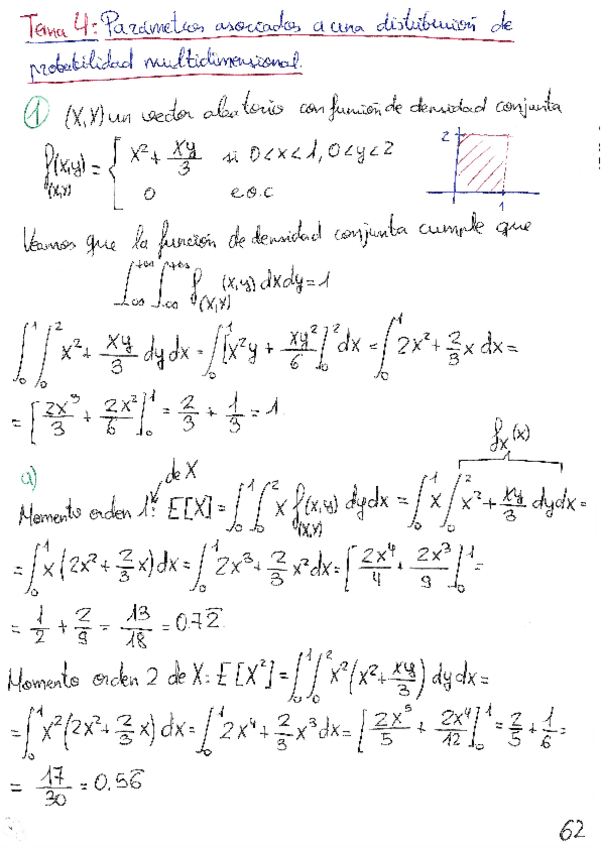 Tema 4: Parámetros asociados a una distribución de
probabilidad multidimensional.
① (X,Y) un vector aleatorio con función de densidad conjunta
f(x,y) = { x² + xy/3 si 0<x<1, 0<y<2
(X,Y)
0 e.o.c
2
1
Veamos que la función de densidad conjunta cumple que
∫_{-∞}^{+∞} ∫_{-∞}^{+∞} f_{(X,Y)}(x,y) dxdy = 1
∫₀¹ ∫₀² x² + xy/3 dy dx = ∫₀¹ [x²y + xy²/6]₀² dx = ∫₀¹ 2x² + 2/3 x dx =
= [2x³/3 + 2x²/6]₀¹ = 2/3 + 1/3 = 1.
f_X(x)
a)
de X
Momento orden 1: E[X] = ∫₀¹ ∫₀² x f_{(X,Y)}(x,y) dydx = ∫₀¹ x ∫₀² x² + xy/3 dydx =
= ∫₀¹ x(2x² + 2/3 x) dx = ∫₀¹ 2x³ + 2/3 x² dx = [2x⁴/4 + 2x³/9]₀¹ =
= 1/2 + 2/9 = 13/18 = 0.72̄
Momento orden 2 de X: E[X²] = ∫₀¹ ∫₀² x²(x² + xy/3) dydx =
= ∫₀¹ x²(2x² + 2/3 x) dx = ∫₀¹ 2x⁴ + 2/3 x³ dx = [2x⁵/5 + 2x⁴/12]₀¹ = 2/5 + 1/6 =
= 17/30 = 0.56̄
62